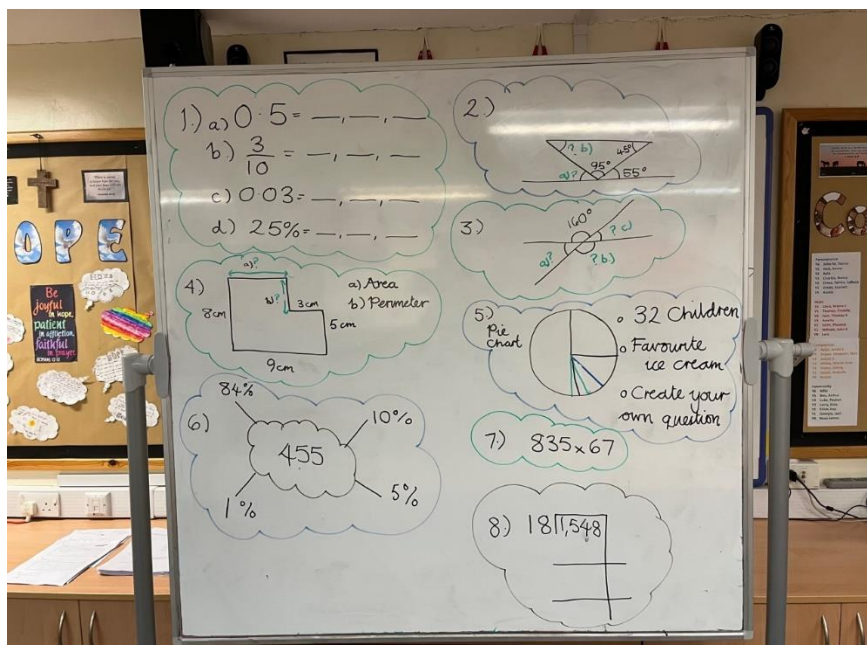 1.) a) 0.5 = _, _, _
b) 3/10 = _, _, _
c) 0.03 = _, _, _
d) 25% = _, _, _
2.)
? b)
45°
a)?
95°
55°
3.)
160°
? c)
a)?
? b)
4)
a)?
b)?
8cm
3cm
5cm
9cm
a) Area
b) Perimeter
5)
Pie
chart
32 Children
Favourite
ice cream
Create your
own question
6)
84%
10%
455
1%
5%
7.) 835 x 67
8.) 18 1,548
OPE
Be
joyful
in hope,
patient
in affliction,
faithful
in prayer.
ROMANS 12:12
Co